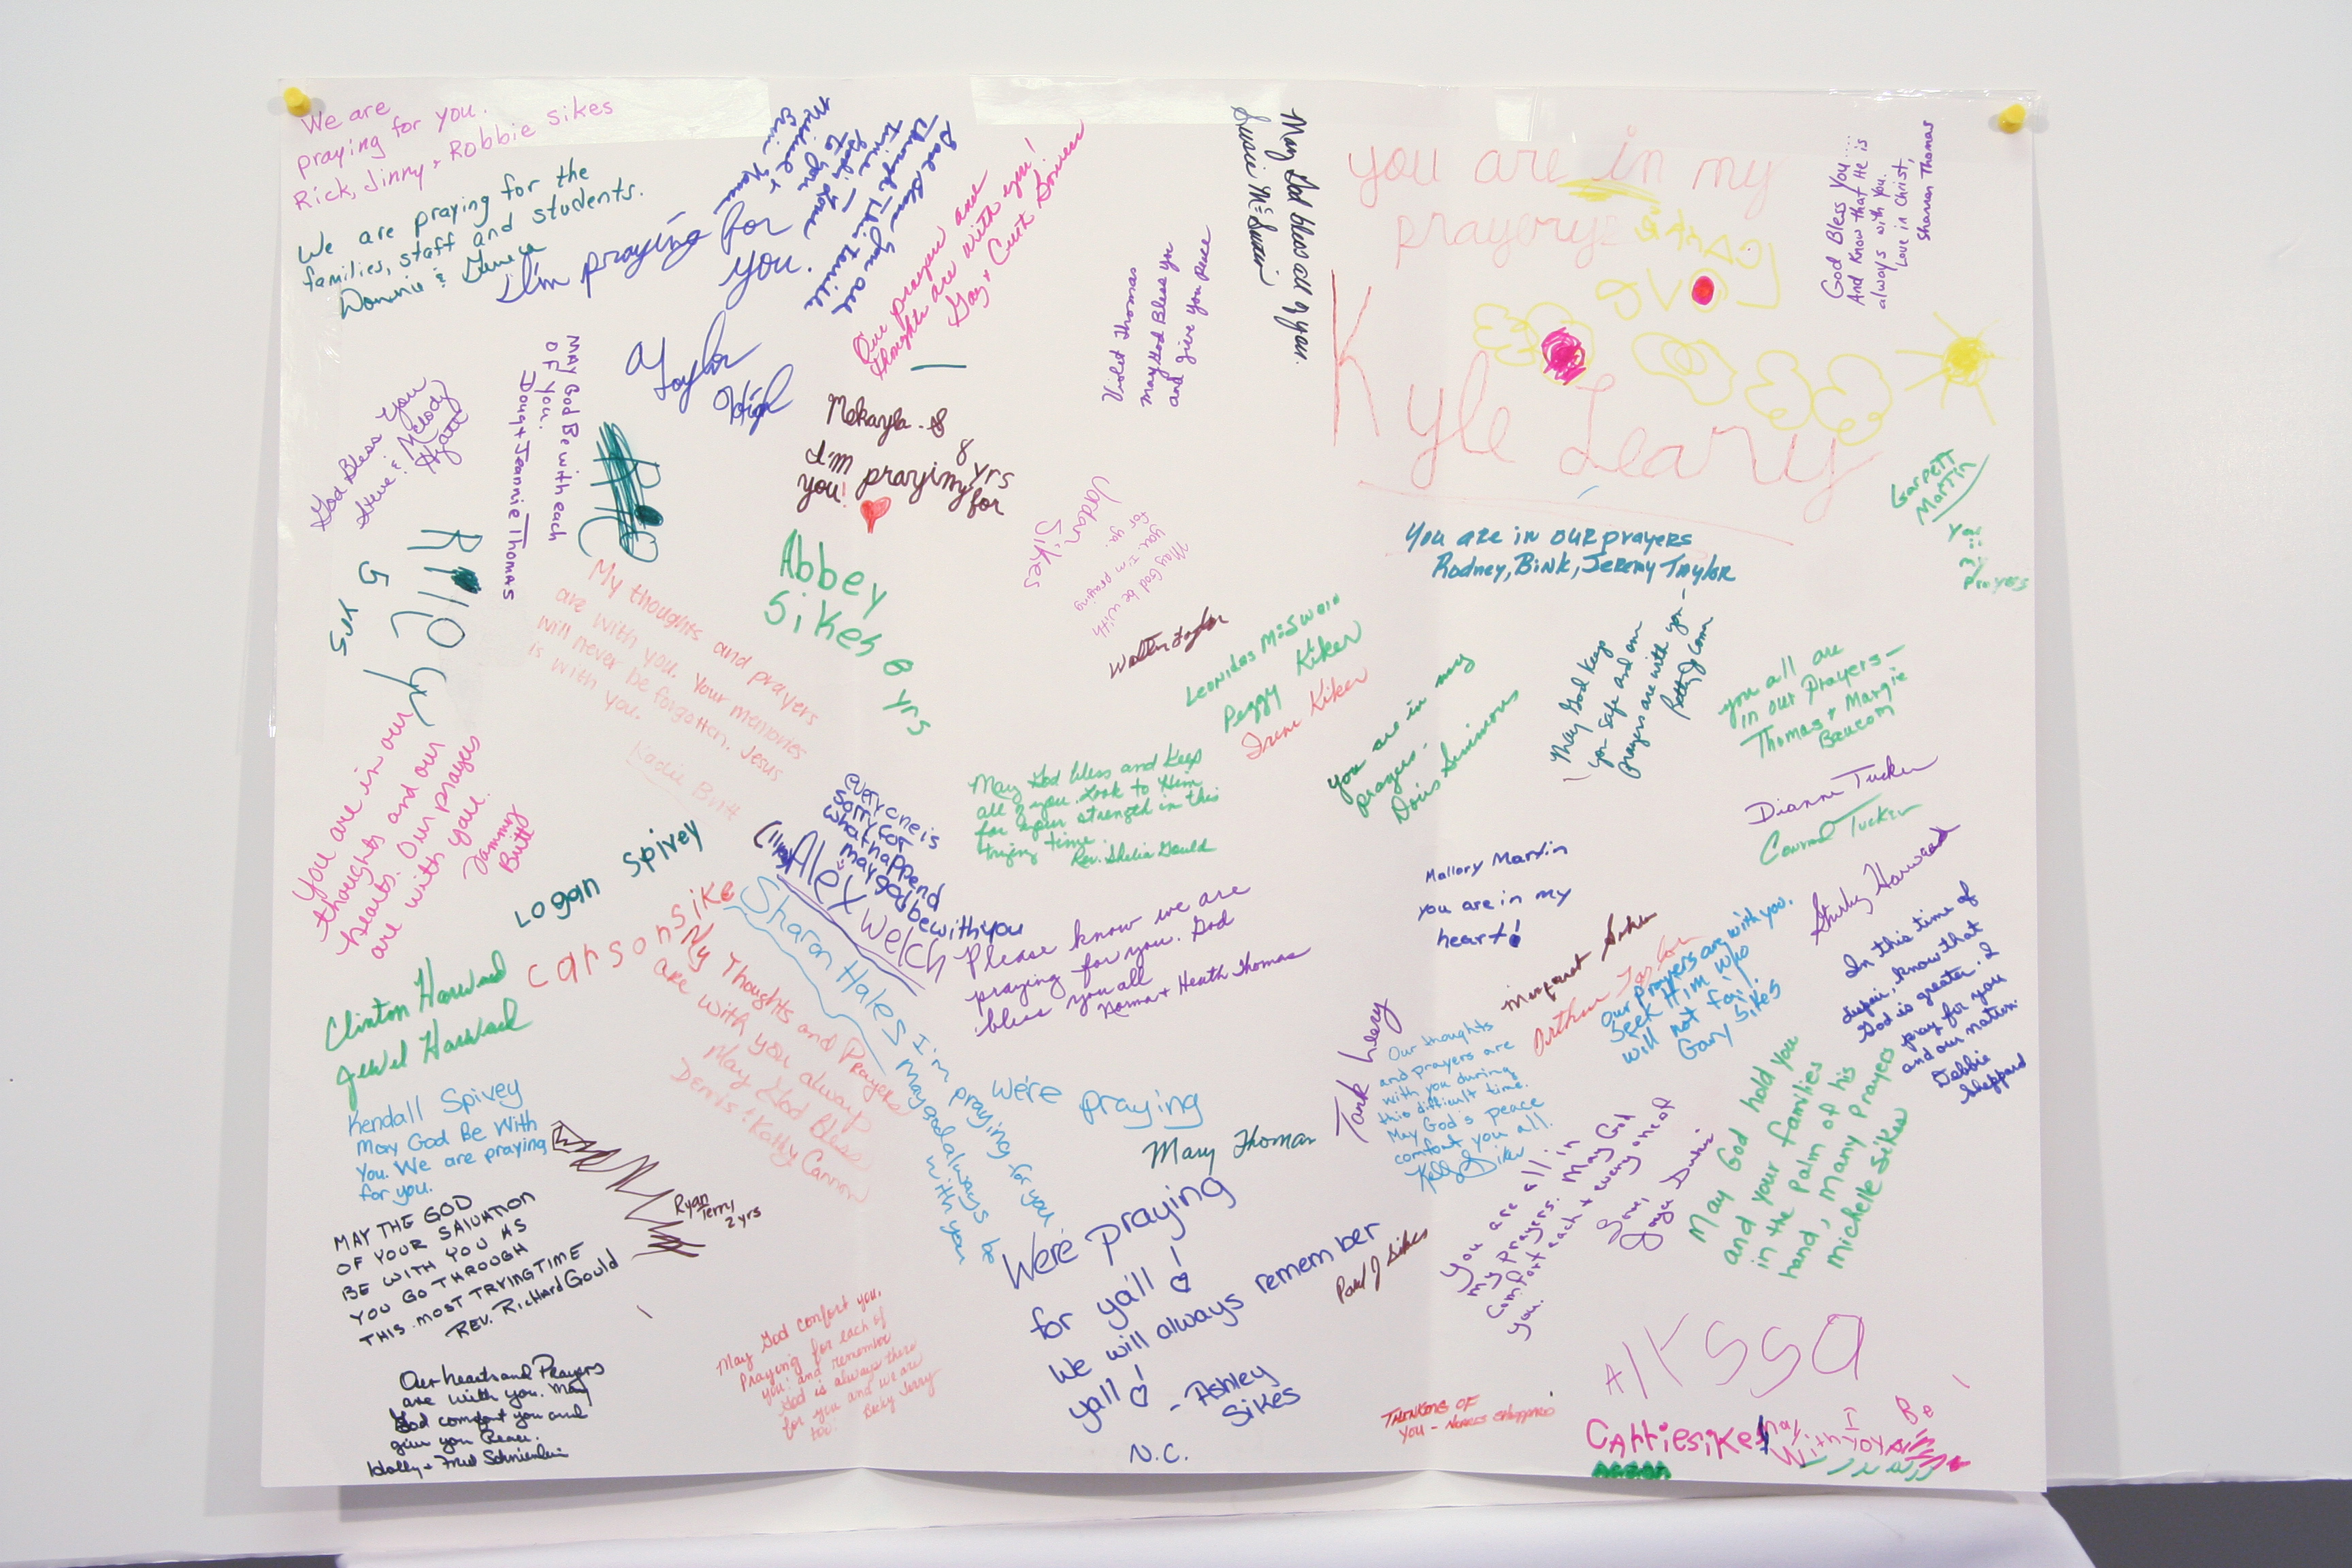 We are
praying for you.
Rick, Jinny + Robbie Sikes
We are praying for the
families, staff and students.
Donnie & Geneva
I'm praying for
you.
Taylor
High
God Bless you are
through this terrible
time
God's Love
to you
Michael &
Our prayers and
thoughts are with you!
Gay + Curt
May God bless all of you.
Susie McSwain
Violet Thomas
May God Bless you
and give you peace
you are in my
prayers
Kyle Leary
God Bless You....
And Know that He is
always with you.
Love in Christ,
Shannan Thomas
God Bless You
Steve & Melody
Hyatt
MAY God Be with each
OF YOU.
Doug + Jeannie Thomas
Mekayla
8 yrs
I'm praying for
you!
Riley
5
Abbey
Sikes 8 yrs
Jordan
Sikes
May God be with
you, I'm praying
for ya.
You are in our prayers
Rodney, Bink, Jeremy Taylor
Garrett
Martin
My thoughts and prayers
are with you. Your memories
will never be forgotten. Jesus
is with you.
Kadie Britt
Walter Taylor
Leonidas McSwain
Peggy Kiker
Irene Kiker
you are in my
prayers -
Doris Simmons
May God keep
you safe and our
prayers are with you -
you all are
in our Prayers -
Thomas + Margie
Baucom
You are in our
thoughts and our
hearts. Our prayers
are with you.
Tammy
Britt
Logan Spivey
everyone is
sorry for
what happend
may god be with you
Alex Welch
May God bless and keep
all of you. Look to Him
for your strength in this
trying time.
Rev. Shelia Gould
Dianne Tucker
Conrad Tucker
Shirley Harward
Mallory Martin
you are in my
heart!
carson sike
Clinton Harward
Jewel Harward
My Thoughts and Prayers
are with you always
May God Bless
Dennis & Kathy Cannon
Sharon Hales
I'm praying for you.
May god always be
with you
Please know we are
praying for you. God
bless you all
Norma + Heath Thomas
Margaret Sikes
Arthur Taylor
Our prayers are with you.
Seek Him who
will not fail.
Gary Sikes
In this time of
despair, know that
God is greater. I
pray for you
and our nation.
Debbie
Sheppard
Kendall Spivey
May God Be With
You. We are praying
for you.
Ryan
Terry
2 yrs
we're praying
Mary Thomas
Tank Leary
Our thoughts
and prayers are
with you during
this difficult time.
May God's peace
comfort you all.
May God hold you
and your families
in the Palm of his
hand, Many Prayers
Michelle Sikes
You are all in
my prayers. May God
comfort each + every one of
you.
Love,
Joyce
MAY THE GOD
OF YOUR SALVATION
BE WITH YOU AS
YOU GO THROUGH
THIS MOST TRYING TIME
REV. RICHARD Gould
We're praying
for ya'll!
We will always remember
yall!
- Ashley
Sikes
N.C.
Paul J Sikes
Our hearts and Prayers
are with you. May
God comfort you and
give you Peace.
Holly + Fred
May God comfort you.
Praying for each of
you and remember
God is always there
for you and we are
too!
Becky Terry
THINKING OF
YOU - NORRIS SHEPPARD
Alyssa
Carriesikes
May
Be
With